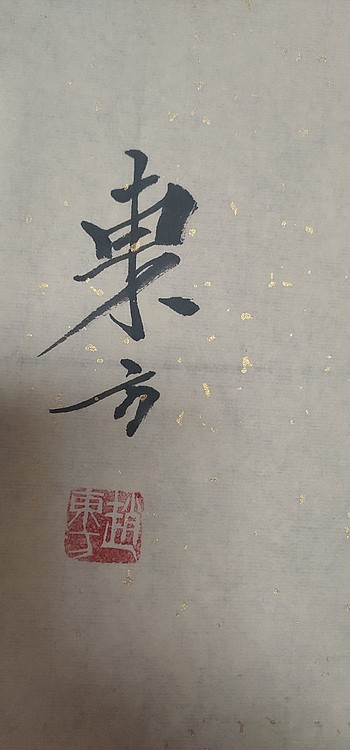 東方
趙東方